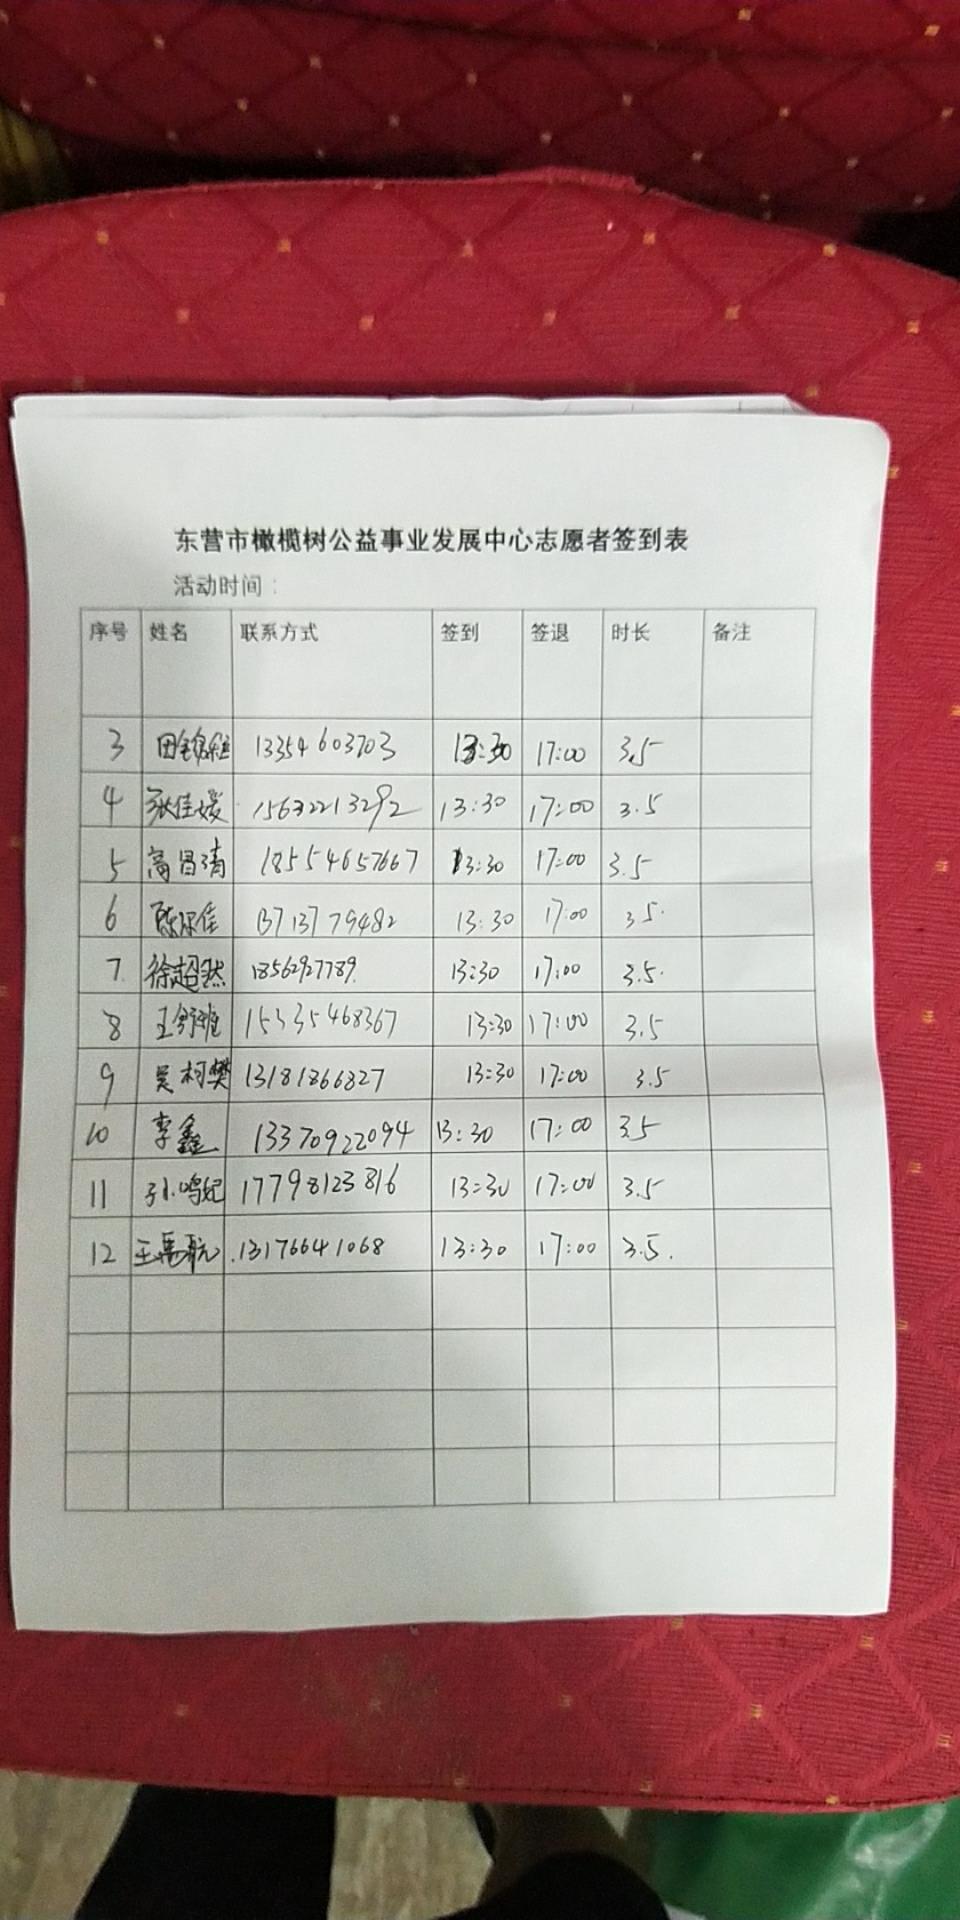 东营市橄榄树公益事业发展中心志愿者签到表
活动时间：
序号 姓名 联系方式 签到 签退 时长 备注
3 13354603703 13:30 17:00 3.5
4 张佳媛 15632213292 13:30 17:00 3.5
5 高昌清 18554657667 13:30 17:00 3.5
6 13713779482 13:30 17:00 3.5.
7. 徐超然 18562927789. 13:30 17:00 3.5.
8 15335468367 13:30 17:00 3.5
9 吴柯樊 13181866827 13:30 17:00 3.5
10 李鑫 13370922094 13:30 17:00 3.5
11 17798123816 13:30 17:00 3.5
12 .13176641068 13:30 17:00 3.5.